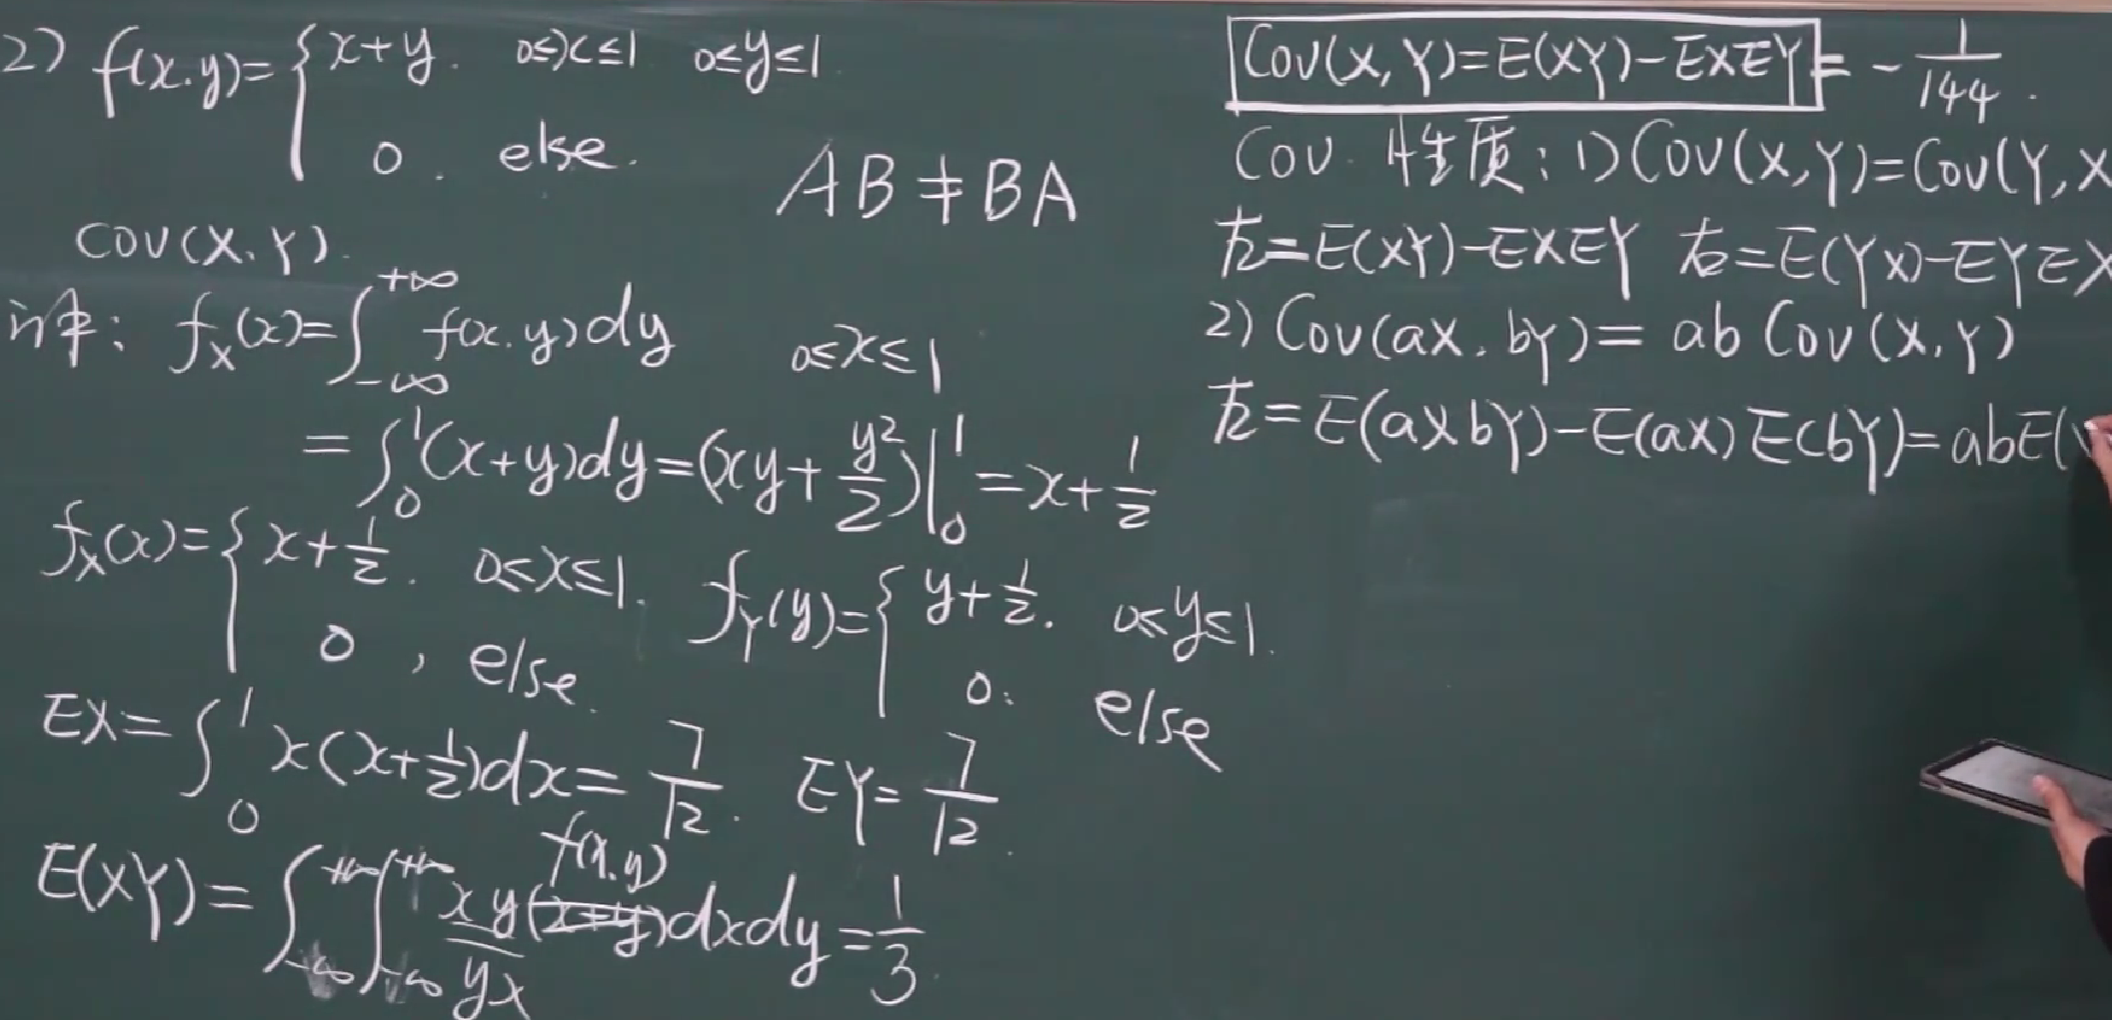 2) f(x.y)={x+y. 0≤x≤1 0≤y≤1
0. else.
AB≠BA
COV(X.Y).
f_X(x)=∫_{-∞}^{+∞} f(x.y)dy 0≤x≤1
=∫_0^1(x+y)dy=(xy+y²/2)|_0^1=x+1/2
f_X(x)={x+1/2. 0≤x≤1. f_Y(y)={y+1/2. 0≤y≤1.
0, else. 0. else
EX=∫_0^1 x(x+1/2)dx=7/12. EY=7/12.
f(x.y)
E(XY)=∫_{-∞}^{+∞}∫_{-∞}^{+∞} xy(x+y)dxdy=1/3.
yx
Cov(X,Y)=E(XY)-EXEY=-1/144.
Cov.性质:1)Cov(X,Y)=Cov(Y,X
左=E(XY)-EXEY 右=E(YX)-EYEX
2)Cov(aX.bY)=ab Cov(X.Y)
左=E(aXbY)-E(aX)E(bY)=abE(